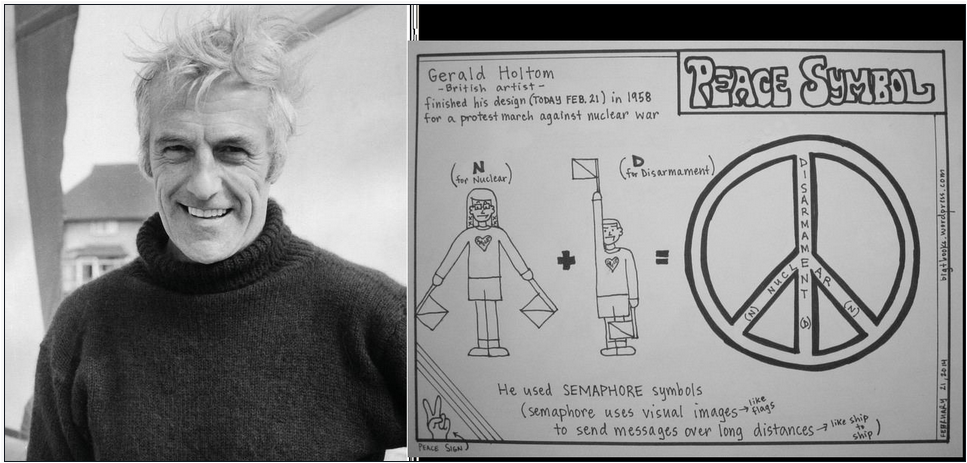 Gerald Holtom
-British artist-
finished his design (TODAY FEB. 21) in 1958
for a protest march against nuclear war
PEACE SYMBOL
N
(for Nuclear)
D
(for Disarmament)
+
=
DISARMAMENT
(D)
NUCLEAR
(N)
(N)
He used SEMAPHORE symbols
(semaphore uses visual images→like flags
to send messages over long distances→like ship to ship)
PEACE SIGN
FEBRUARY 21, 2014